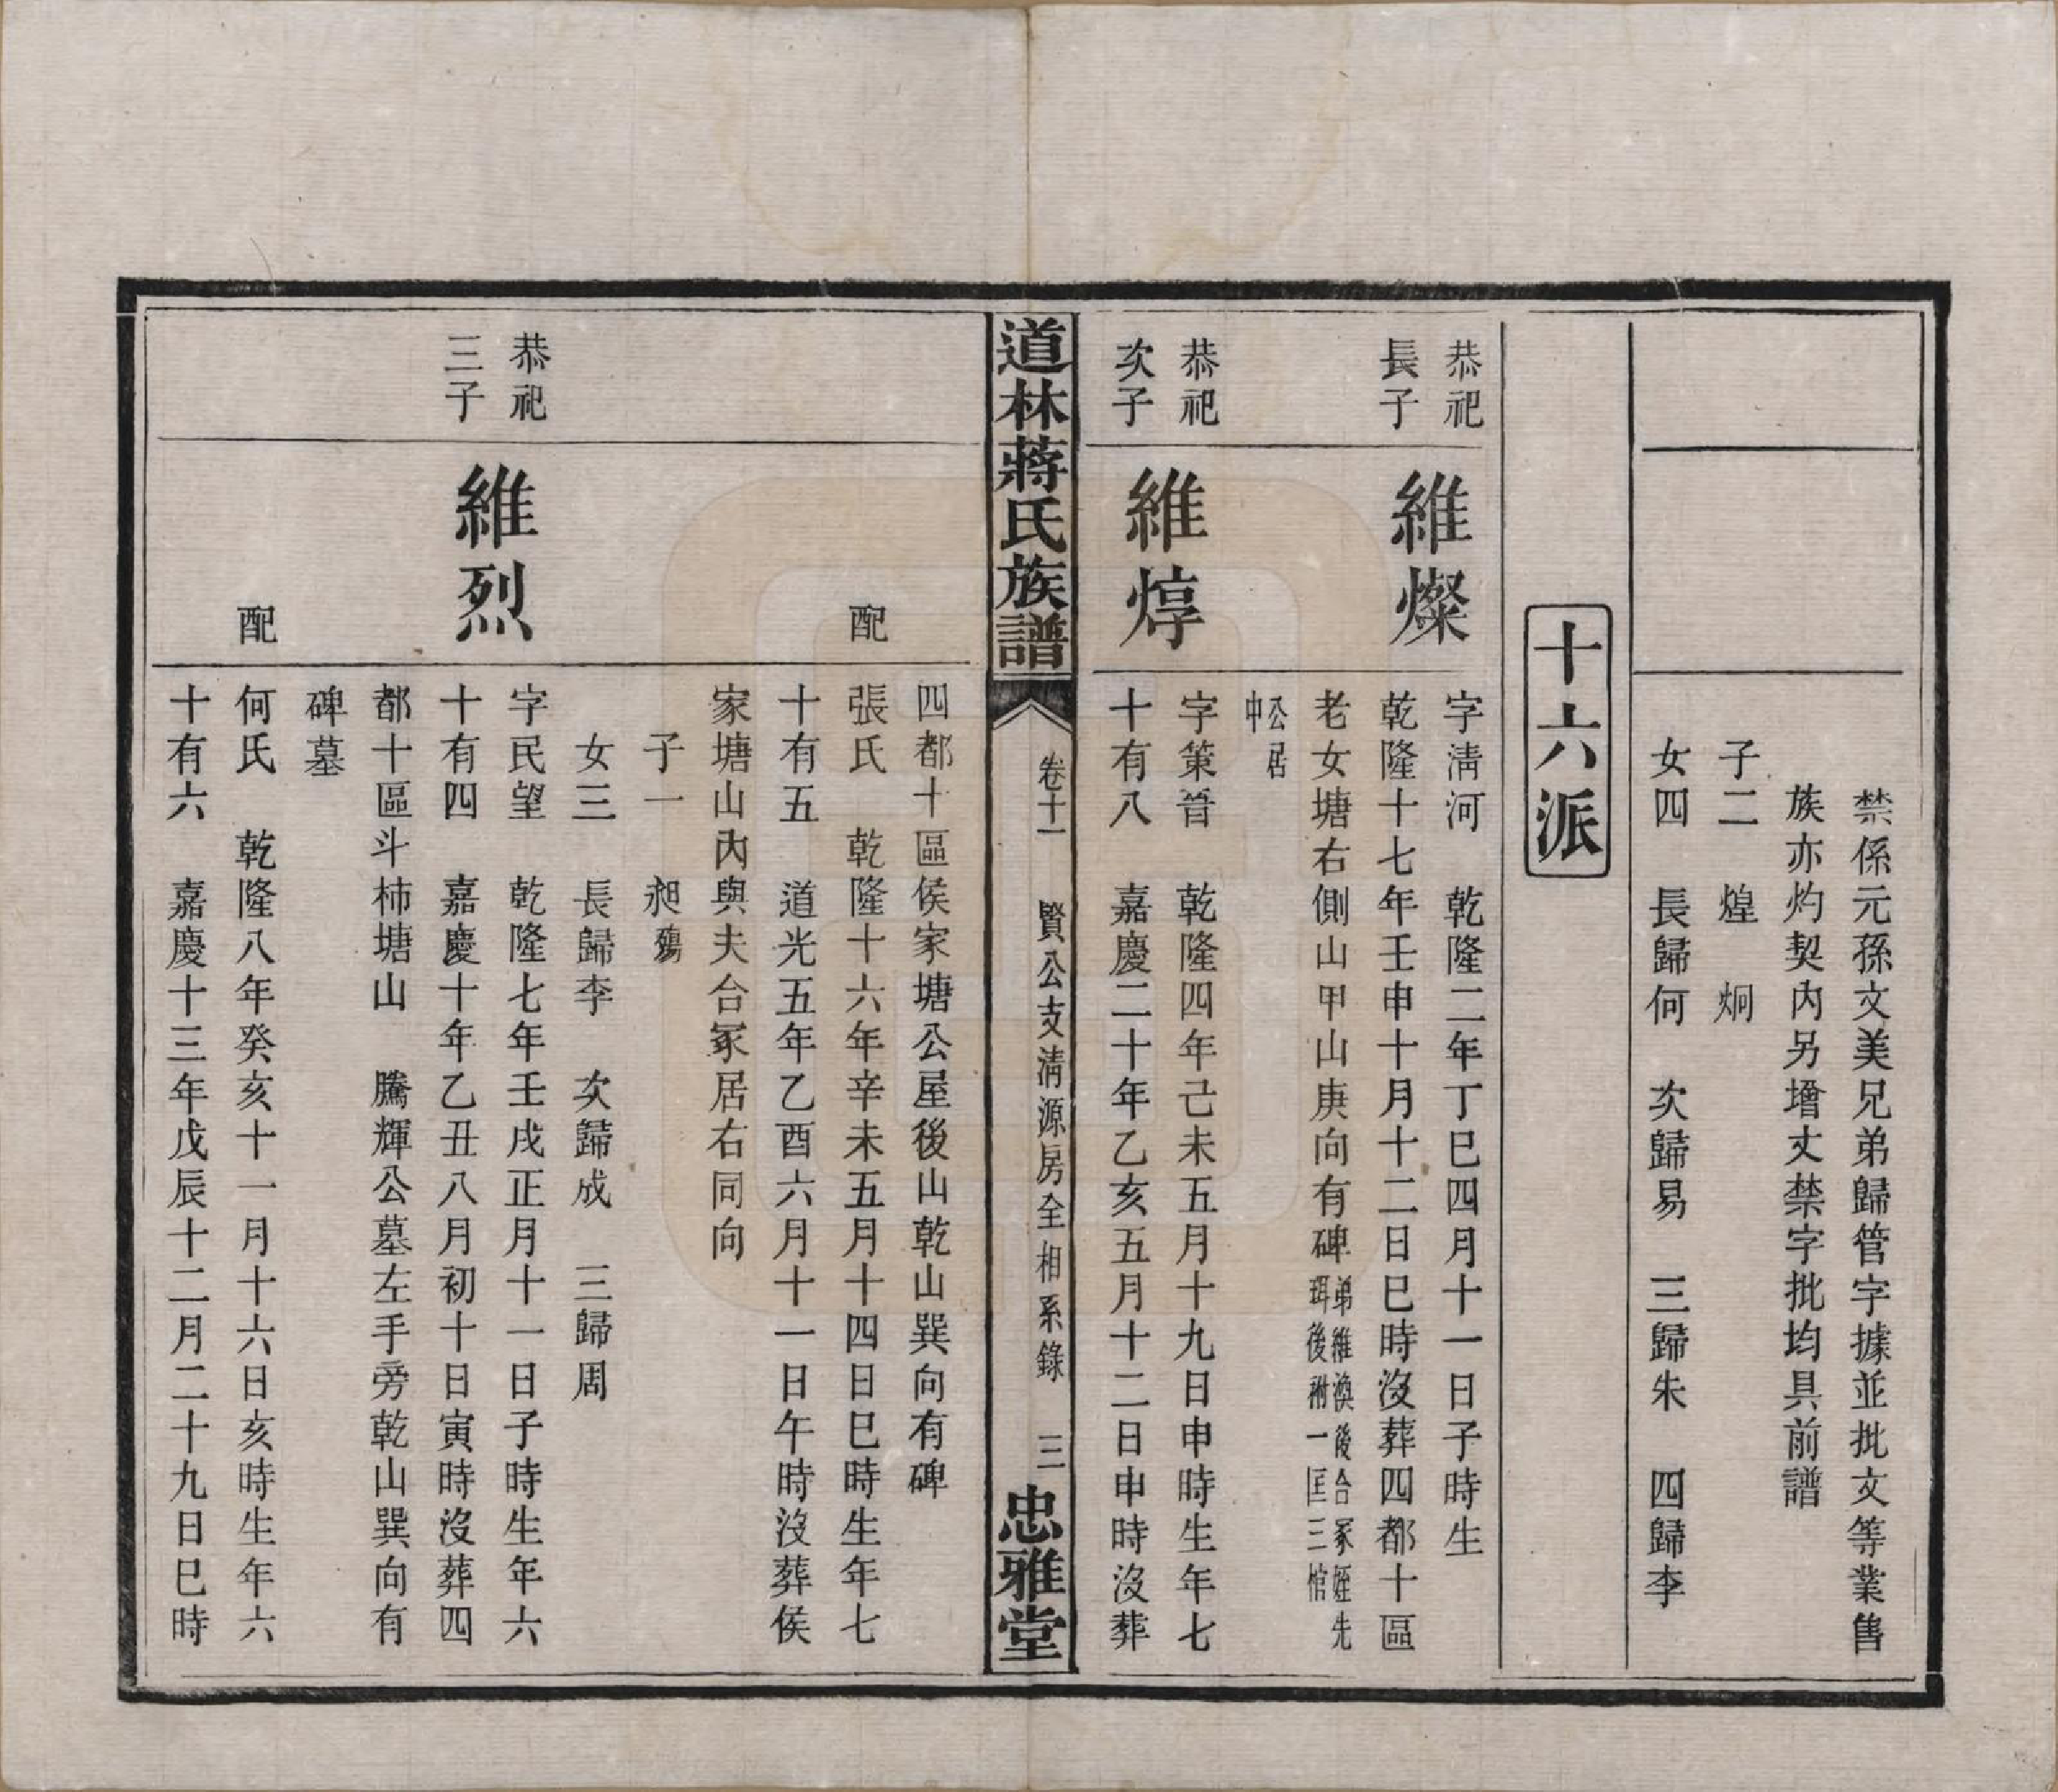 禁係元孫文美兄弟歸管字據並批文等業售
族亦灼契內另增丈禁字批均具前譜
子二　煌　炯
女四　長歸何　次歸易　三歸朱　四歸李
十六派
恭祀
長子
維燦
字淸河　乾隆二年丁巳四月十一日子時生
乾隆十七年壬申十月十二日巳時沒葬四都十區
老女塘右側山甲山庚向有碑弟維渙後合冢姪先
珥後祔一匡三棺
公居
中
恭祀
次子
維焞
字策晉　乾隆四年己未五月十九日申時生年七
十有八　嘉慶二十年乙亥五月十二日申時沒葬
道林蔣氏族譜
卷十一　賢公支淸源房全相系錄　三
忠雅堂
四都十區侯家塘公屋後山乾山巽向有碑
配
張氏　乾隆十六年辛未五月十四日巳時生年七
十有五　道光五年乙酉六月十一日午時沒葬侯
家塘山內與夫合冢居右同向
子一　昶
女三　長歸李　次歸成　三歸周
恭祀
三子
維烈
字民望　乾隆七年壬戌正月十一日子時生年六
十有四　嘉慶十年乙丑八月初十日寅時沒葬四
都十區斗柿塘山　騰輝公墓左手旁乾山巽向有
碑墓
配
何氏　乾隆八年癸亥十一月十六日亥時生年六
十有六　嘉慶十三年戊辰十二月二十九日巳時